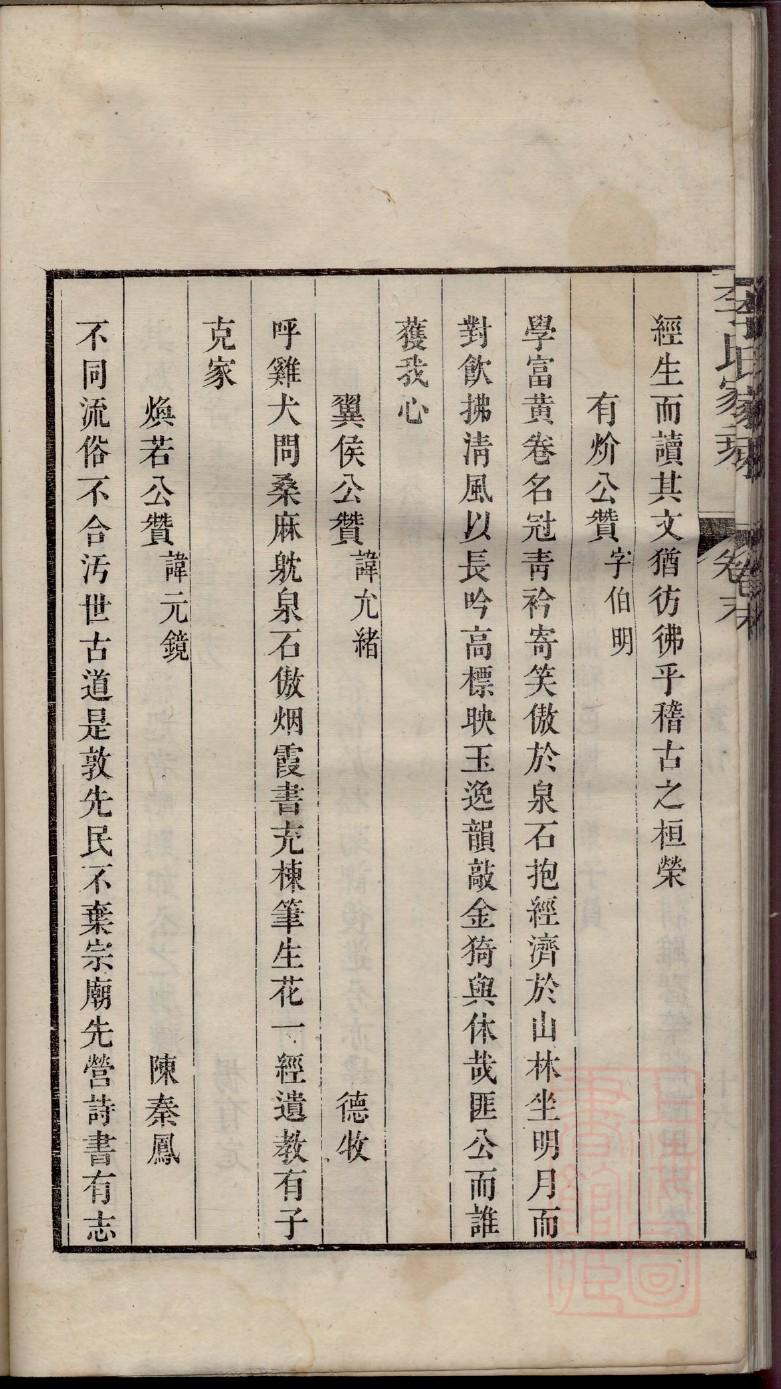 李氏家乘 卷末
經生而讀其文猶彷彿乎稽古之桓榮
有炌公贊字伯明
學富黃卷名冠青衿寄笑傲於泉石抱經濟於山林坐明月而
對飲拂清風以長吟高標映玉逸韻敲金猗與休哉匪公而誰
獲我心
翼侯公贊諱允緒 德牧
呼雞犬問桑麻躭泉石傲烟霞書充棟筆生花一經遺教有子
克家
煥若公贊諱元鏡 陳秦鳳
不同流俗不合汚世古道是敦先民不棄宗廟先營詩書有志